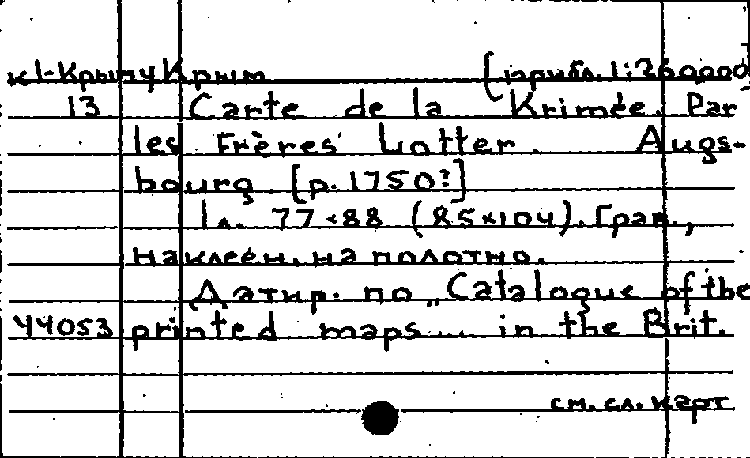 к1-Крым/4 Крым [прибл. 1:260000]
13 Carte de la Krimée. Par
les Frères Lotter. Augs-
bourg. [p. 1750?]
1 л. 77×88 (85×104). Грав.,
наклеен. на полотно.
Датир. по „Catalogue of the
44053 printed maps... in the Brit.
см. сл. карт